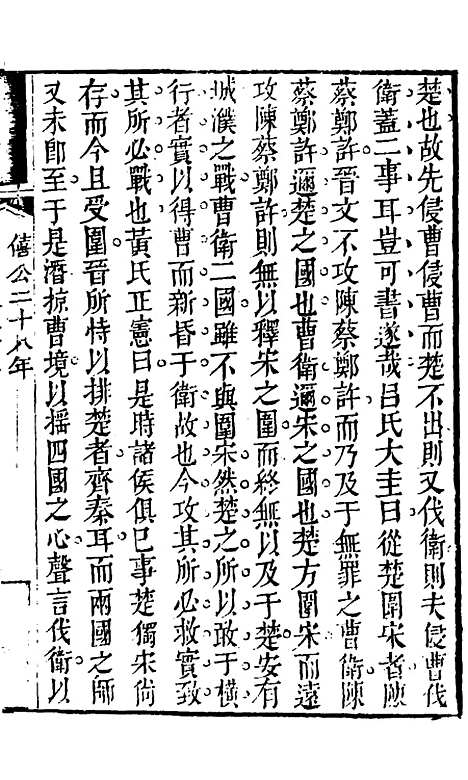 楚也故先侵曹侵曹而楚不出則又伐衛則夫侵曹伐
衛蓋二事耳豈可書遂哉呂氏大圭曰從楚圍宋者陳
蔡鄭許晉文不攻陳蔡鄭許而乃及于無罪之曹衛陳
蔡鄭許邇楚之國也曹衛邇宋之國也楚方圍宋而遠
攻陳蔡鄭許則無以釋宋之圍而終無以及于楚安有
城濮之戰曹衛二國雖不與圍宋然楚之所以敢于橫
行者實以得曹而新昏于衛故也今攻其所必救實致
其所必戰也黃氏正憲曰是時諸侯俱已事楚獨宋尙
存而今且受圍晉所恃以排楚者齊秦耳而兩國之師
又未卽至于是潛掠曹境以搖四國之心聲言伐衛以
僖公二十八年